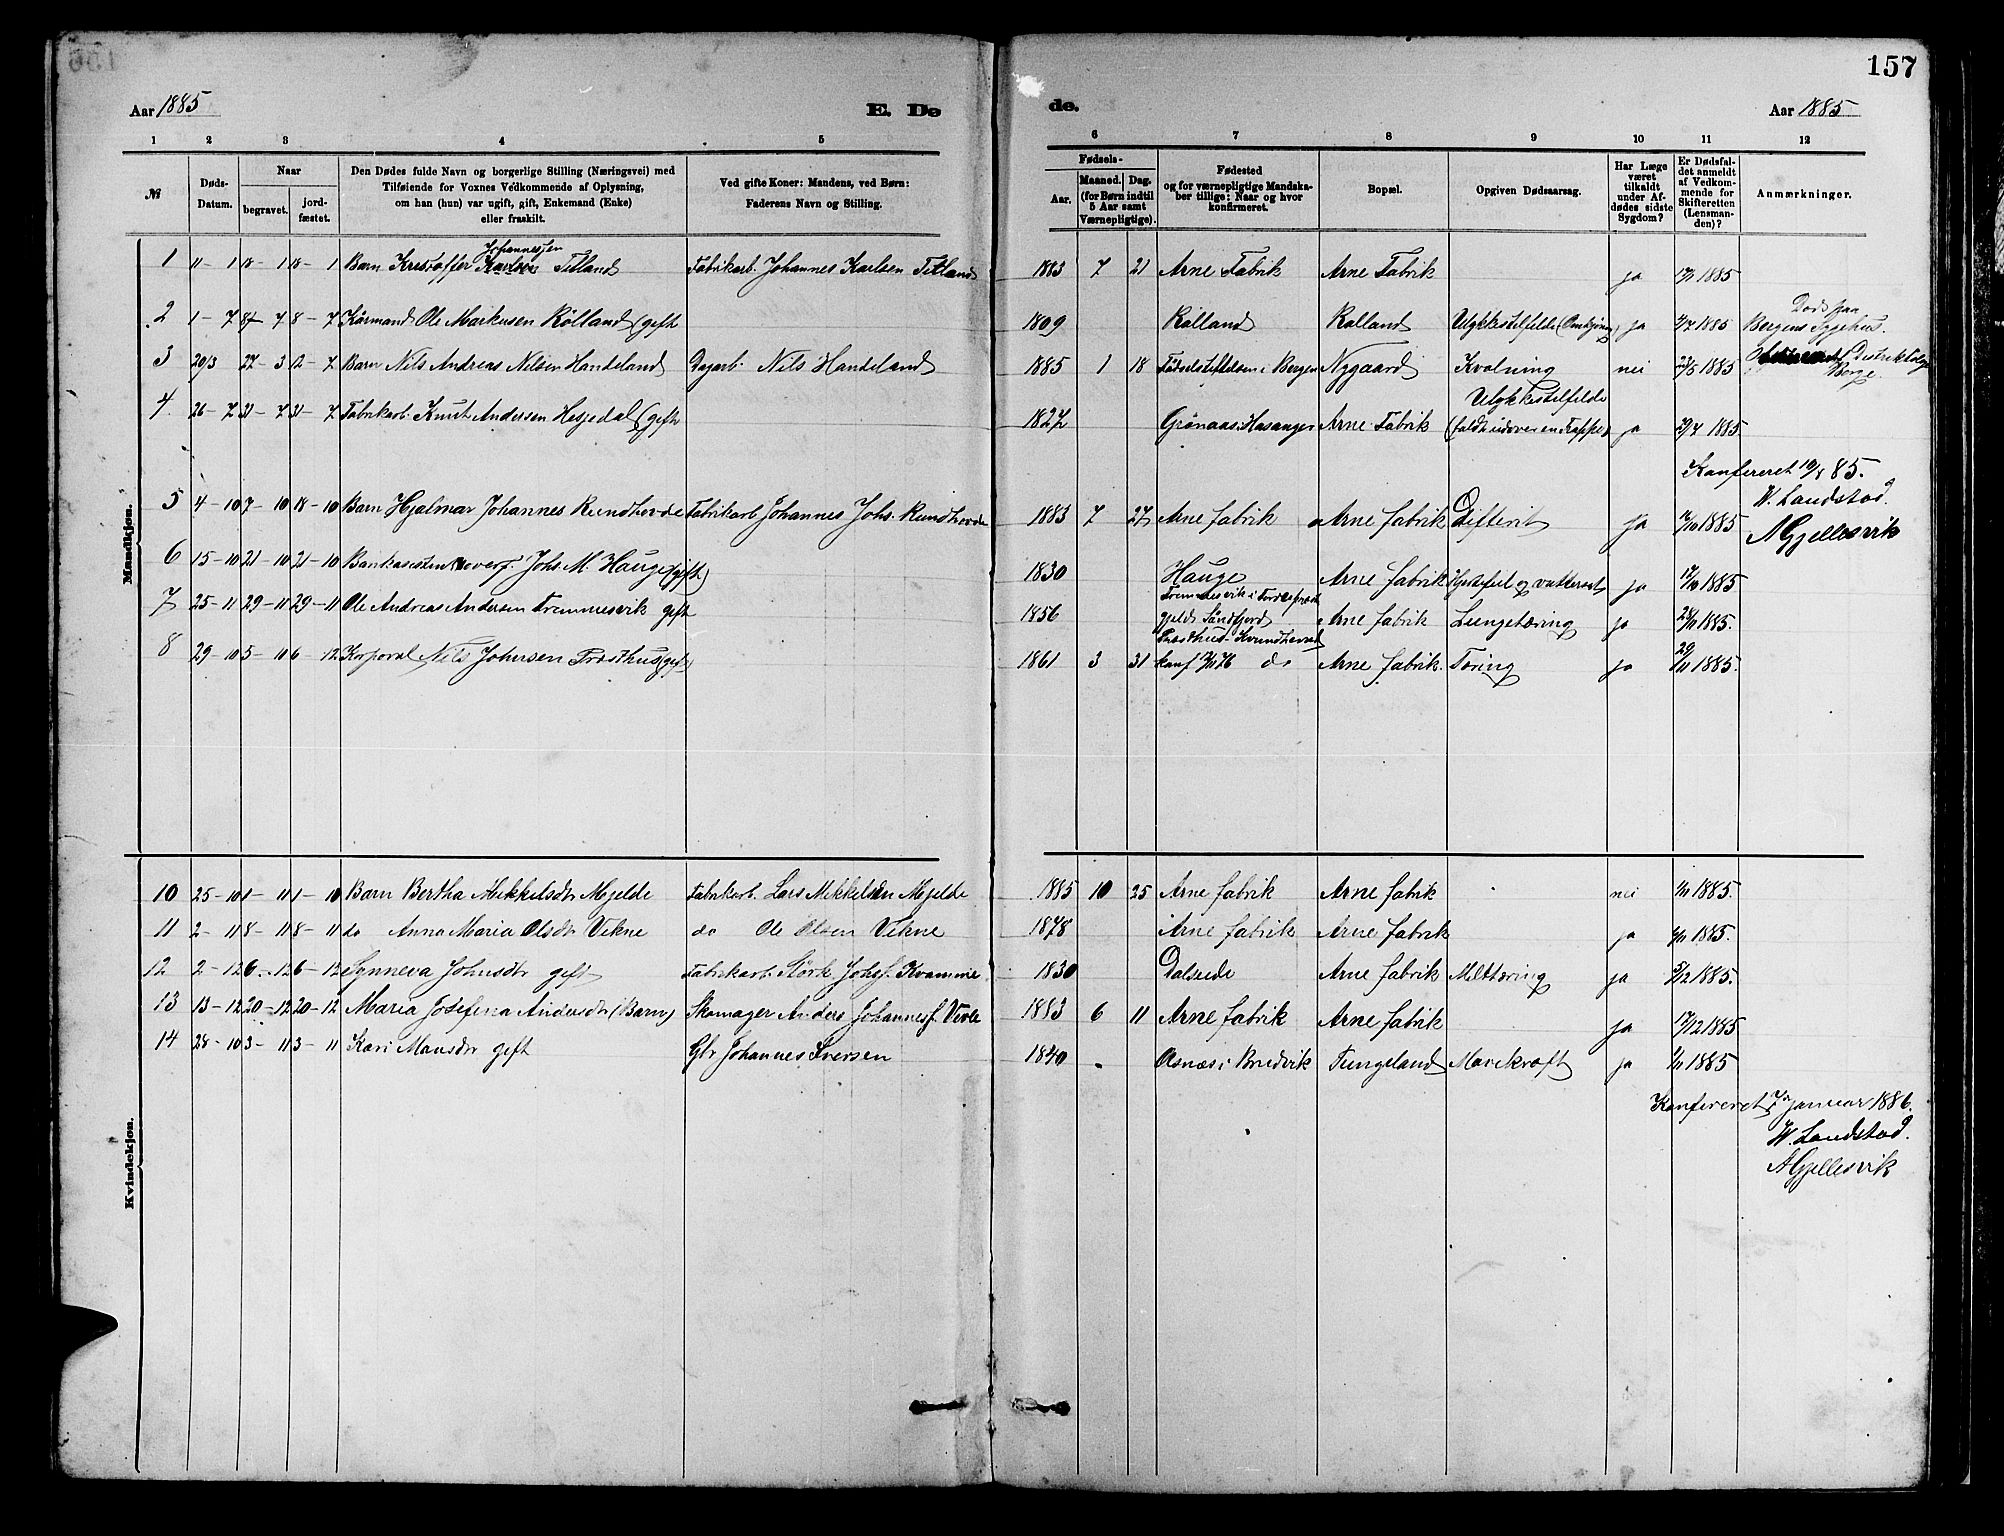 157
Aar 1885
E. Dø
de.
Aar 1885
1 2 3 4 5
6 7 8 9 10 11 12
№
Døds-Datum.
Naar
begravet.
jord-fæstet.
Den Dødes fulde Navn og borgerlige Stilling (Næringsvei) med
Tilføiende for Voxnes Vedkommende af Oplysning,
om han (hun) var ugift, gift, Enkemand (Enke)
eller fraskilt.
Ved gifte Koner: Mandens, ved Børn:
Faderens Navn og Stilling.
Fødsels-
Aar.
Maaned. Dag.
(for Børn indtil
5 Aar samt
Værnepligtige).
Fødested
og for værnepligtige Mandska-
ber tillige: Naar og hvor
konfirmeret.
Bopæl.
Opgiven Dødsaarsag.
Har Læge
været
tilkaldt
under Af-
dødes sidste
Sygdom?
Er Dødsfal-
det anmeldt
af Vedkom-
mende for
Skifteretten
(Lensman-
den)?
Anmærkninger.
Mandkjøn.
Johannessen
1 11-1 18-1 18-1 Barn Kristoffer Karlsen Titland Fabrikarb. Johannes Karlsen Titland 1883 7 21 Arne Fabrik Arne Fabrik ja 1885
Død paa
2 1-7 8-7 8-7 Kårmand Ole Markusen Rölland (gift 1809 Rölland Rolland Ulykkestilfelde ja 1885 Bergens Sygehus.
3 20/3 27-3 12-7 Barn Nils Andreas Nilsen Handeland Dagarb. Nils Handeland 1885 1 18 Födselstiftelsen i Bergen Nygaard Kvolning nei 1885
Borge.
Ulykkestilfelde
4. 26-7 31-7 31-7 Fabrikarb. Knut Andersen Hesjedal (gift 1827 Grönaas Hosanger Arne Fabrik (faldt udover en Trappe) ja 29/7 1885.
Konfereret 10/8 85.
W. Landstad.
5 4-10 7-10 18-10 Barn Hjalmar Johannes Rundhovde Fabrikarb Johannes Johs. Rundhovde 1883 7 27 Arne fabrik Arne fabrik Difterit ja 1885
A Gjellesvik
6 15-10 21-10 21-10 Johs M. Hauge (gift) 1830 Hauge Arne fabrik ja 1885
7 25-11 29-11 29-11 Ole Andreas Andersen Tremmesvik gift 1856 Söndfjord Arne fabrik Lungetæring ja 1885.
8 29-10 5-10 6-12 Korporal Nils Johnsen Træsthus (gift) 1861 3 31 konf do Arne fabrik. Tæring ja 29/11 1885.
Kvindekjøn.
10 25-10 1-11 1-10 Barn Bertha Mikkelsdr Mjelde Fabrikarb. Lars Mikkelsen Mjelde 1885 10 25 Arne fabrik Arne fabrik nei 1885.
11 2-11 8-11 8-11 do Anna Maria Olsdr Vikne do Ole Olsen Vikne 1878 Arne fabrik Arne fabrik ja 1885.
12 2-12 6-12 6-12 Synneva Johnsdr gift Fabrikarb. Störk Johs. Kvamme 1830 Dalseide Arne fabrik Milttæring ja 5/12 1885.
13 13-12 20-12 20-12 Maria Josefena Andersdr (Barn) Skomager Anders Johannes. Vevle 1883 6 11 Arne fabrik Arne fabrik ja 17/12 1885
14 28-10 3-11 3-11 Kari Monsdr gift Gbr Johannes Iversen 1840 Osnæs i Bredvik Tungeland Mavekræft ja 1885
Konfereret januar 1886.
W. Landstad.
A Gjellesvik